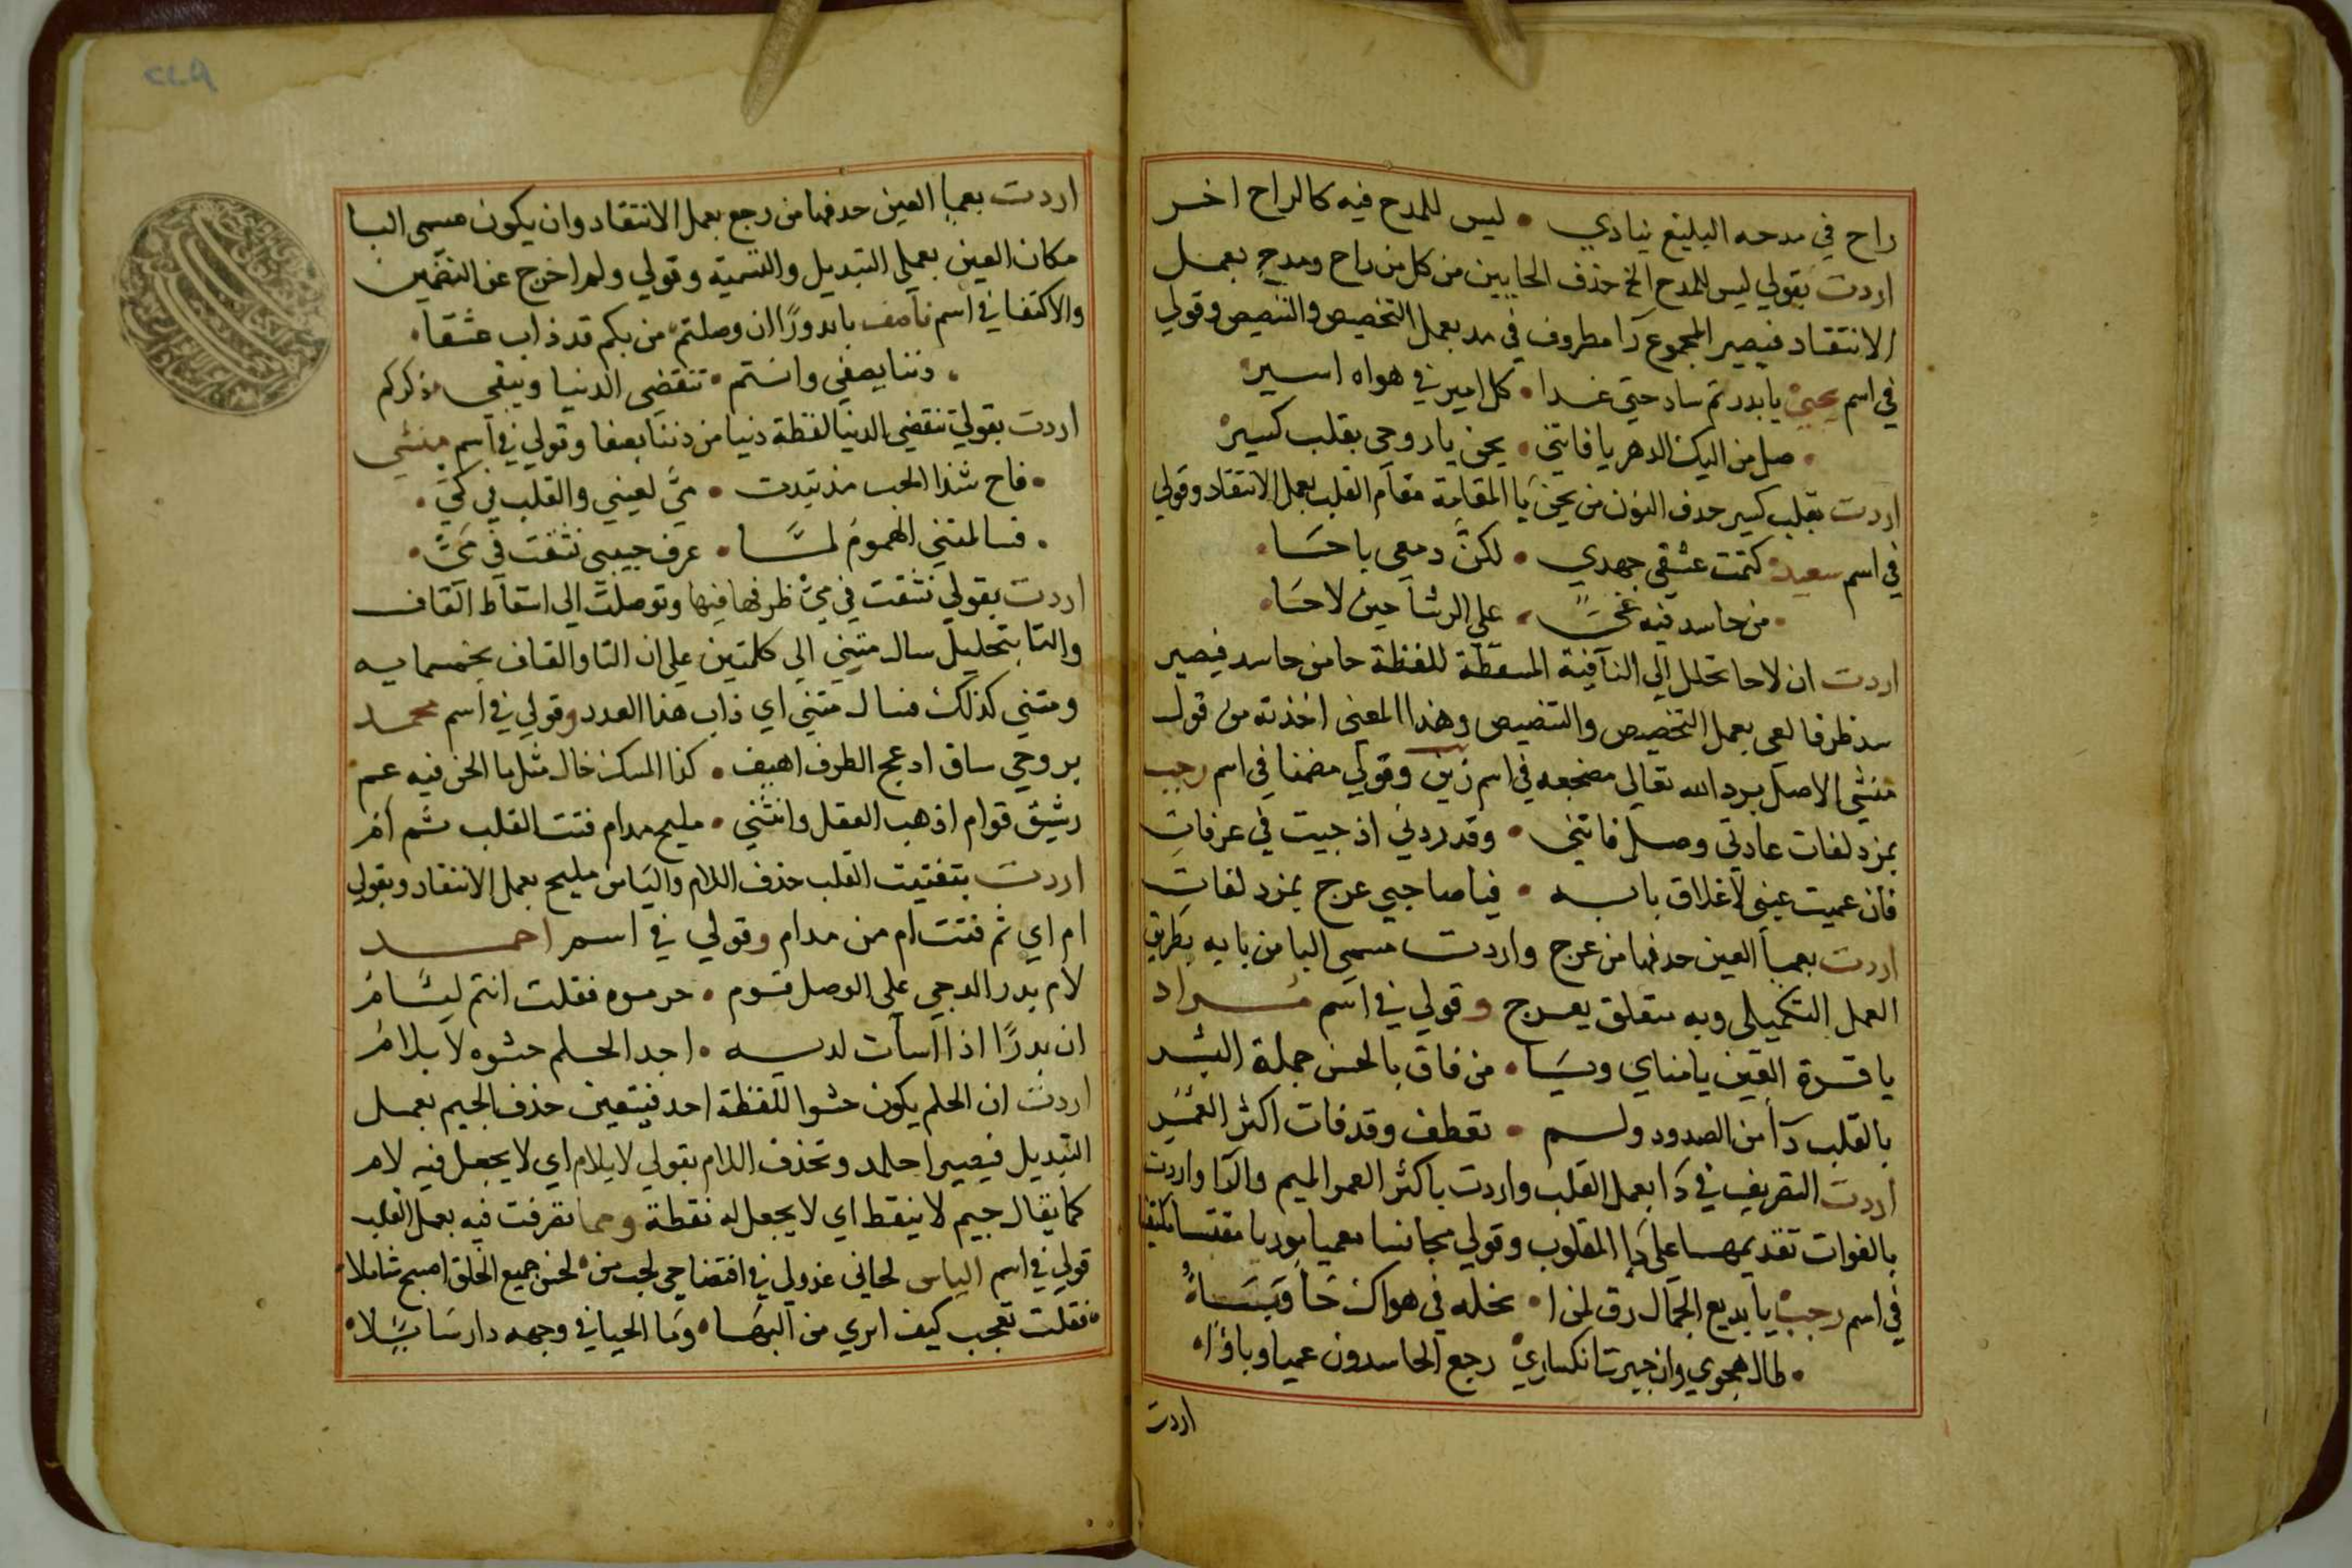 راح في مدحه البليغ ينادي • ليس للمدح فيه كالراح اخر
اردت بقولي ليس للمدح الخ حذف الحايين من كل من راح ومدح بعمل
الانتقاد فيصير المجموع را مظروف في مد بعمل التخصيص والتنصيص وقولي
في اسم يحيى يا بدر تم ساد حتى غدا • كل امير في هواه اسير
• صل من اليك الدهر يا فاتني • يحن يا روحي بقلب كسير
اردت بقلب كسير حذف النون من يحن يا المقامة مقام القلب بعمل الانتقاد وقولي
في اسم سعيد كتمت عشقي جهدي • لكن دمعي باحا
• من حاسد فيه غي • على الرشا حين لاحا
اردت ان لاحا تحلل الى النافية المسقطة للفظة حا من حاسد فيصير
سد ظرفا لعي بعمل التخصيص والتنصيص وهذا المعنى اخذته من قول
منشي الاصل برد الله تعالى مضجعه في اسم زينب وقولي مضمنا في اسم رجب
بمزدلفات عادتي وصل فاتني • وقد ردني اذ جيت في عرفات
فان عميت عيني لاغلاق بابه • فيا صاحبي عرج بمزدلفات
اردت بعما العين حذفها من عرج واردت مسمى البا من بابه بطريق
العمل التكميلي وبه متعلق بعرج وقولي في اسم مراد
يا قرة العين يا مناي ويا • من فاق بالحسن جملة البشر
بالقلب دا من الصدود ولم • تعطف وقد فات اكثر العمر
اردت التصريف في دا بعمل القلب واردت باكثر العمر الميم والرا واردت
بالفوات تقديمهما على دا المقلوب وقولي مجانسا معميا موريا مقتبسا مكتفيا
في اسم رجب يا بديع الجمال رق لمن ا • نخله في هواك
• طال هجوي وان جبرت انكساري رجع الحاسدون عميا وباؤا
اردت
اردت بعما العين حذفها من رجع بعمل الانتقاد وان يكون مسمى البا
مكان العين بعملي التبديل والتسمية وقولي ولم اخرج عن التضمين
والاكتفا في اسم يا بدورا ان وصلتم من بكم قد ذاب عشقا
• دننا يصفي وانتم • تنقضي الدنيا ويبقى ذكركم
اردت بقولي تنقضي الدنيا لفظة دنيا من دننا يصفا وقولي في اسم منشي
• فاح شذا الحب مذ تبدت • مي لعيني والقلب في كي •
• فسالمتني الهموم لما • عرف حبيبي نشقت في مي •
اردت بقولي نشقت في مي ظرفها فيها وتوصلت الى اسقاط القاف
والتا بتحليل سالمتني الى كلمتين على ان التا والقاف بخمسمايه
ومتني كذلك فسال متني اي ذاب هذا العدد وقولي في اسم محمد
بروحي ساق ادعج الطرف اهيف • كذا المسك خال مثل ما الحسن فيه عم
رشيق قوام اذهب العقل وانثنى • مليح مدام فتت القلب ثم ام
اردت بتفتيت القلب حذف اللام واليا من مليح بعمل الانتقاد وبقولي
ام اي ثم فتت ام من مدام وقولي في اسم احمد
لام بدر الدجى على الوصل قوم • حرموه فقلت انتم ليام
ان بدرا اذا اسات لديه • اجد الحلم حشوه لا يلام
اردت ان الحلم يكون حشوا للفظة احد فيتعين حذف الجيم بعمل
التبديل فيصير احلمد وتحذف اللام بقولي لا يلام اي لا يجعل فيه لام
كما يقال جيم لا ينقط اي لا يجعل له نقطة ومما تصرفت فيه بعمل القلب
قولي في اسم الياس لحاني عذولي في افتضاحي لحب من لحسن جميع الخلق اصبح شاملا
• فقلت تعجب كيف ابري من البها • وما الحيا في وجهه دار سايلا •